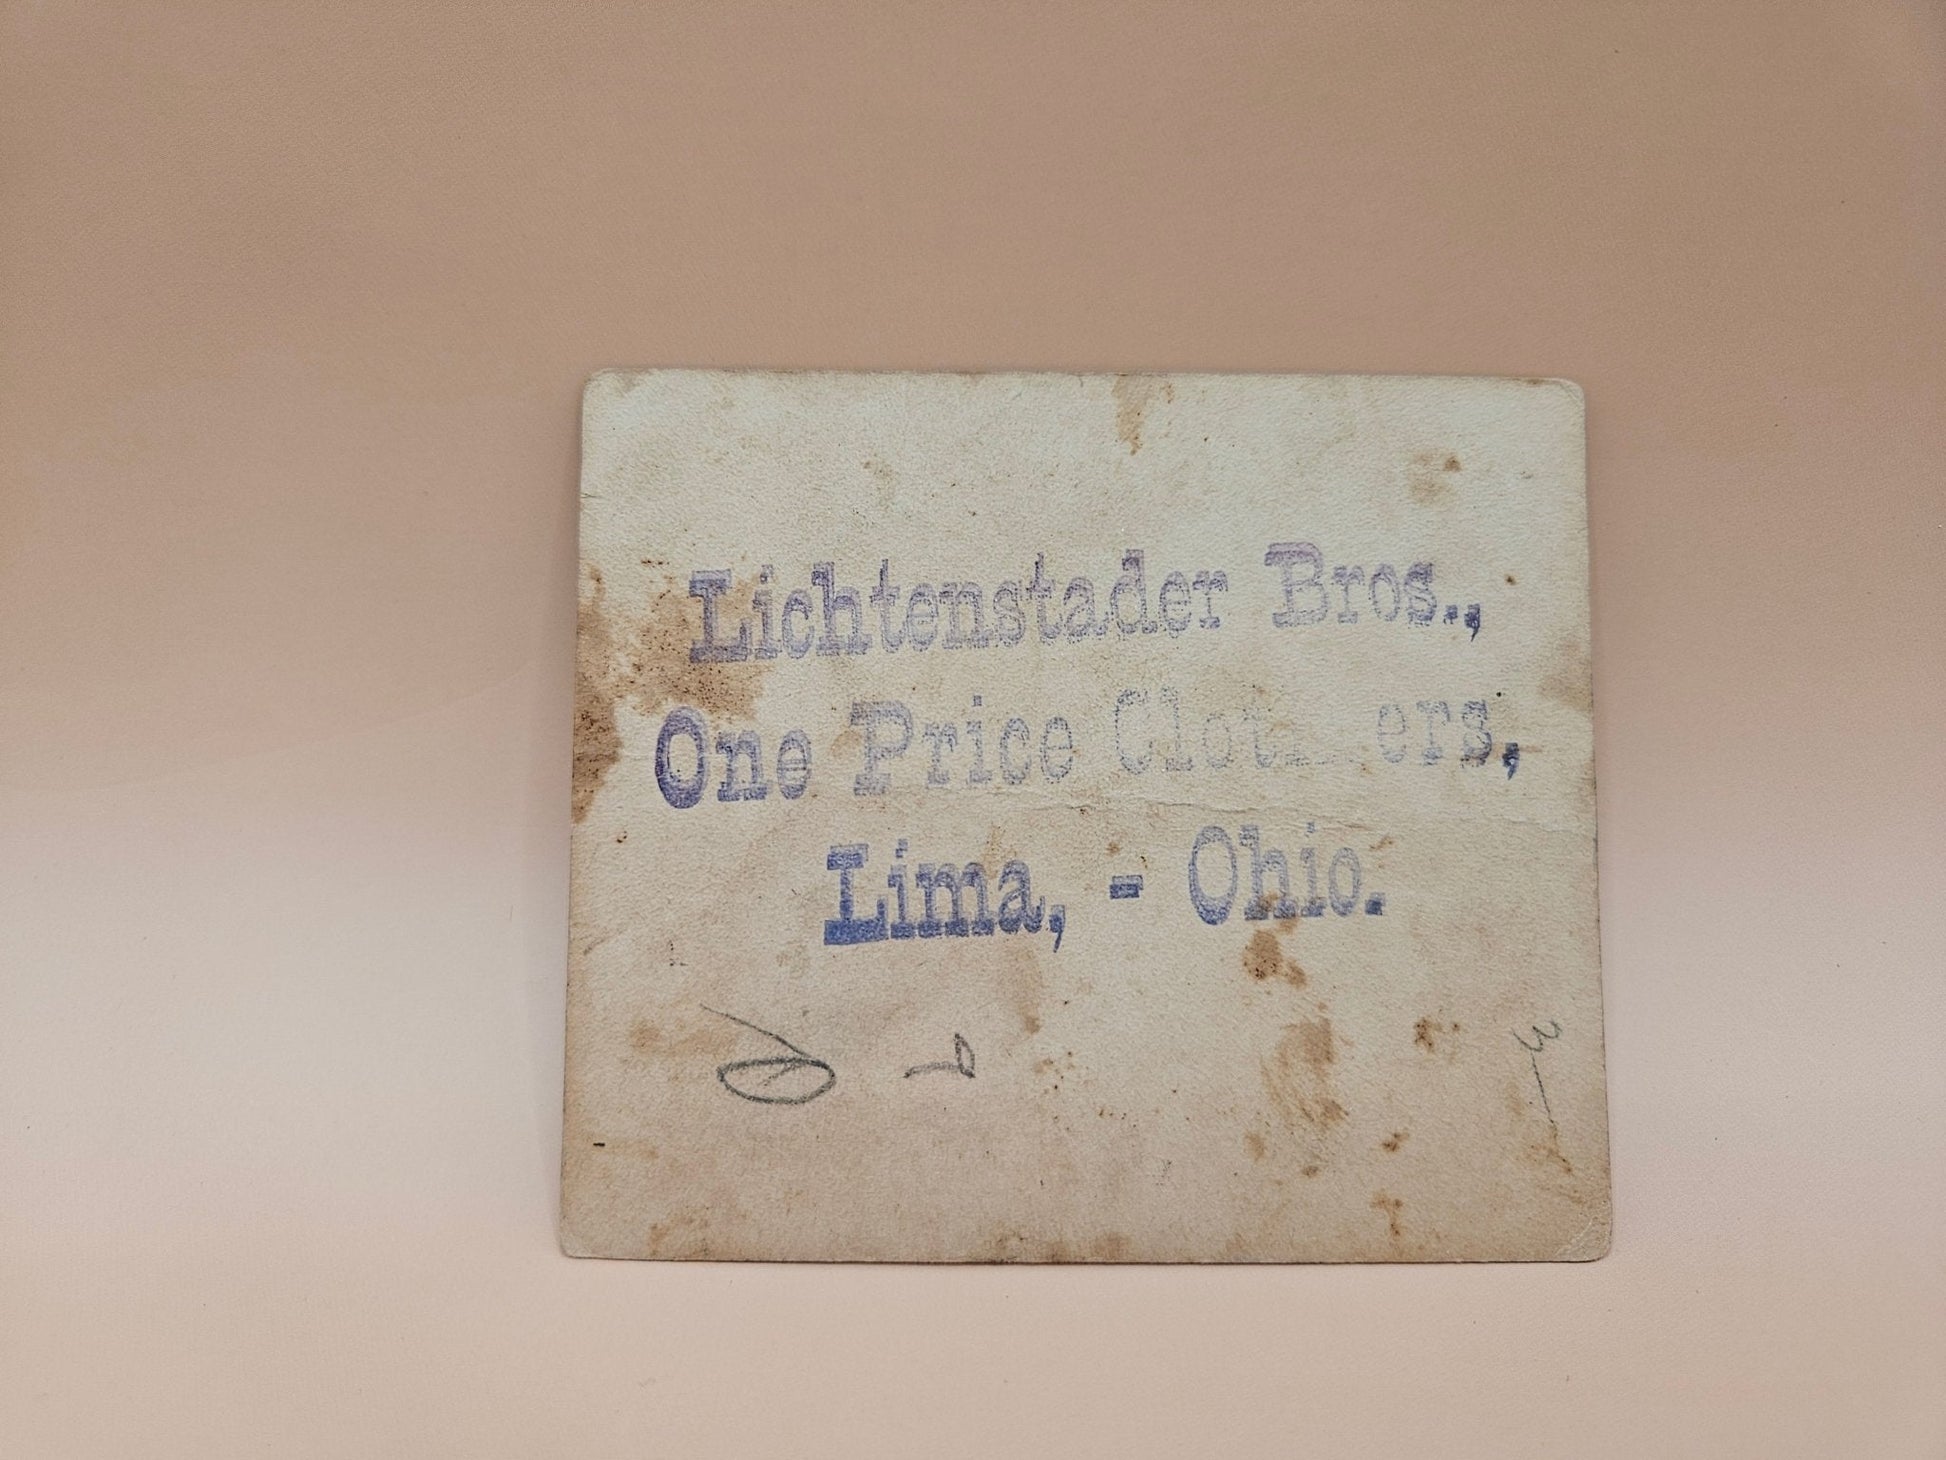 Lichtenstader Bros.,
One Price Clothers,
Lima, - Ohio.